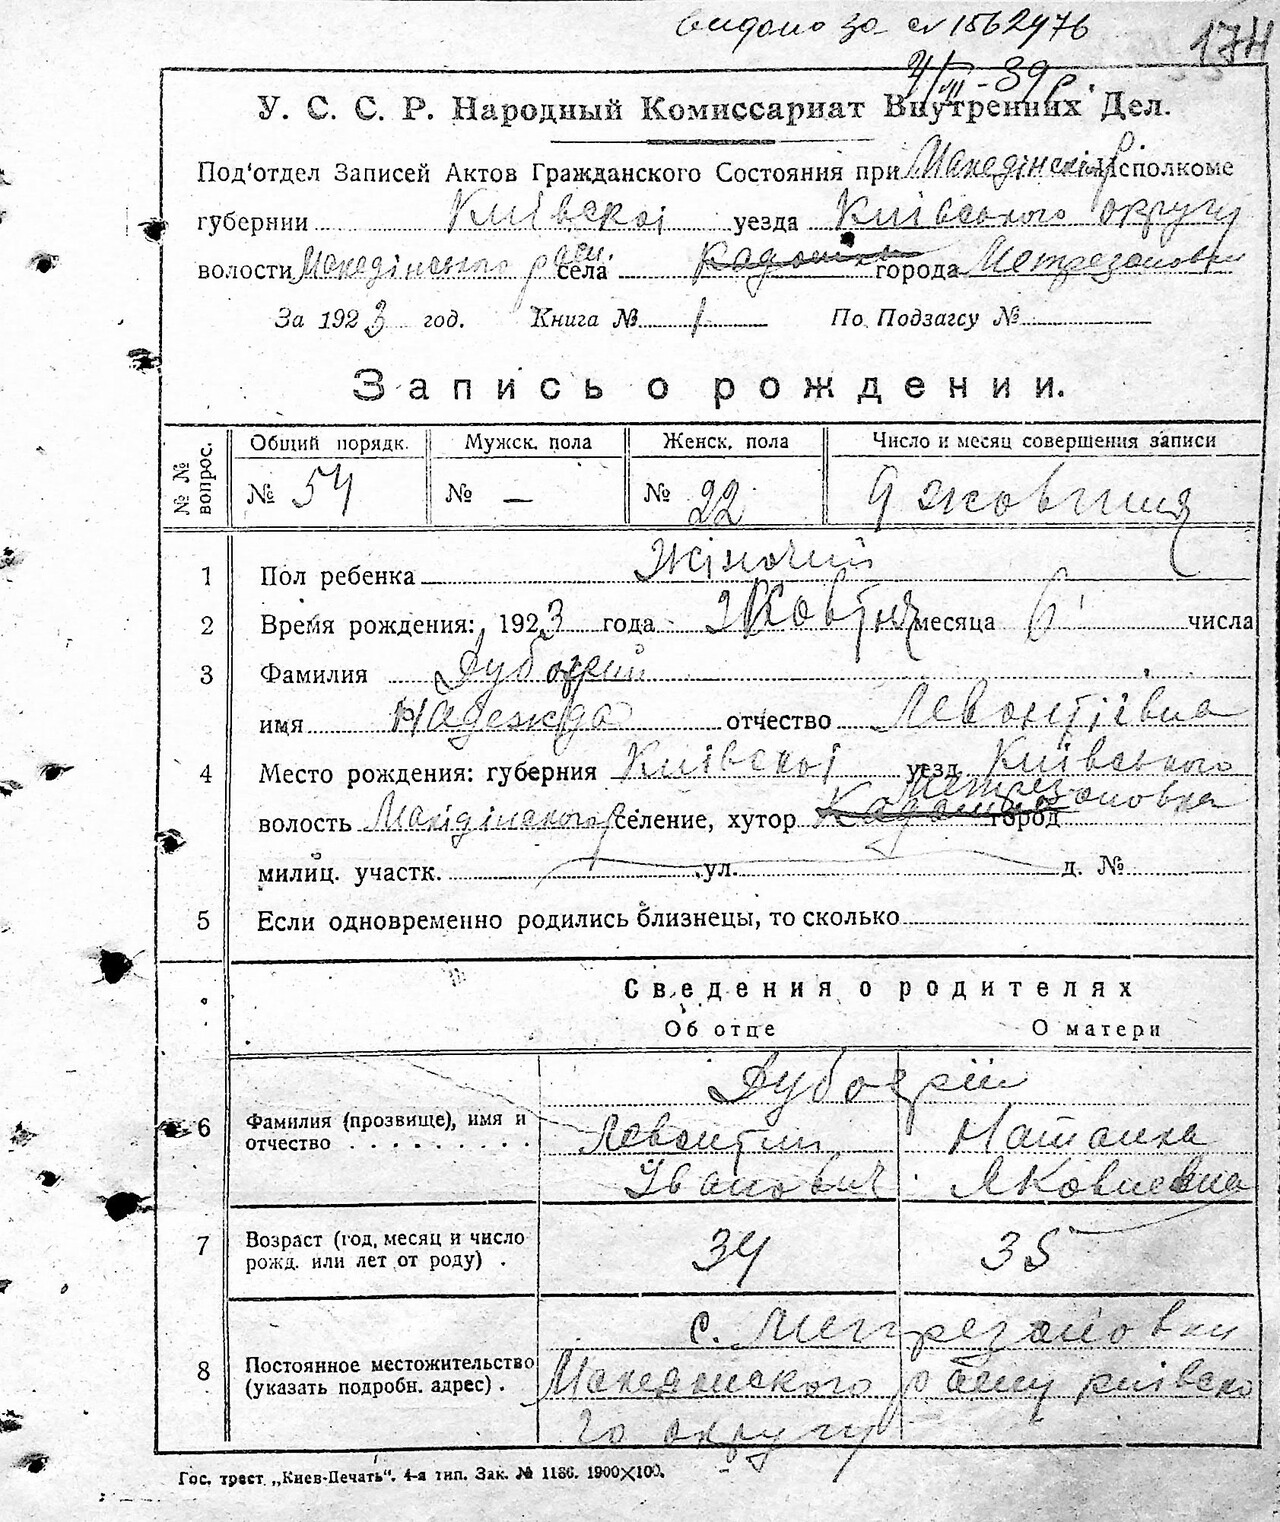 видано за № 1562476
174
4/VII - 39 р
У. С. С. Р. Народный Комиссариат Внутренних Дел.
Под'отдел Записей Актов Гражданского Состояния при Македінскі Исполкоме
губернии Київскоі уезда Київського округу
волости Македінського села города
За 1923 год. Книга № 1 По Подзагсу №
Запись о рождении.
№ № вопрос.
Общий порядк. Мужск. пола Женск. пола Число и месяц совершения записи
№ 54 № — № 22 9 жовтня
1 Пол ребенка Жіночий
2 Время рождения: 1923 года Жовтня месяца 6 числа
3 Фамилия
имя Надежда отчество Левонтіівна
4 Место рождения: губерния Київскоі уезд Київського
волость селение, хутор город
милиц. участк. ул. д. №
5 Если одновременно родились близнецы, то сколько
Сведения о родителях
Об отце О матери
6 Фамилия (прозвище), имя и
отчество . . . . . . . . .
Левонтий Наталка
Іванович Яковлевна
7 Возраст (год, месяц и число
рожд. или лет от роду) .
34 35
8 Постоянное местожительство
(указать подробн. адрес) .
с.
округу
Гос. трест „Киев-Печать". 4-я тип. Зак. № 1186. 1900×100.